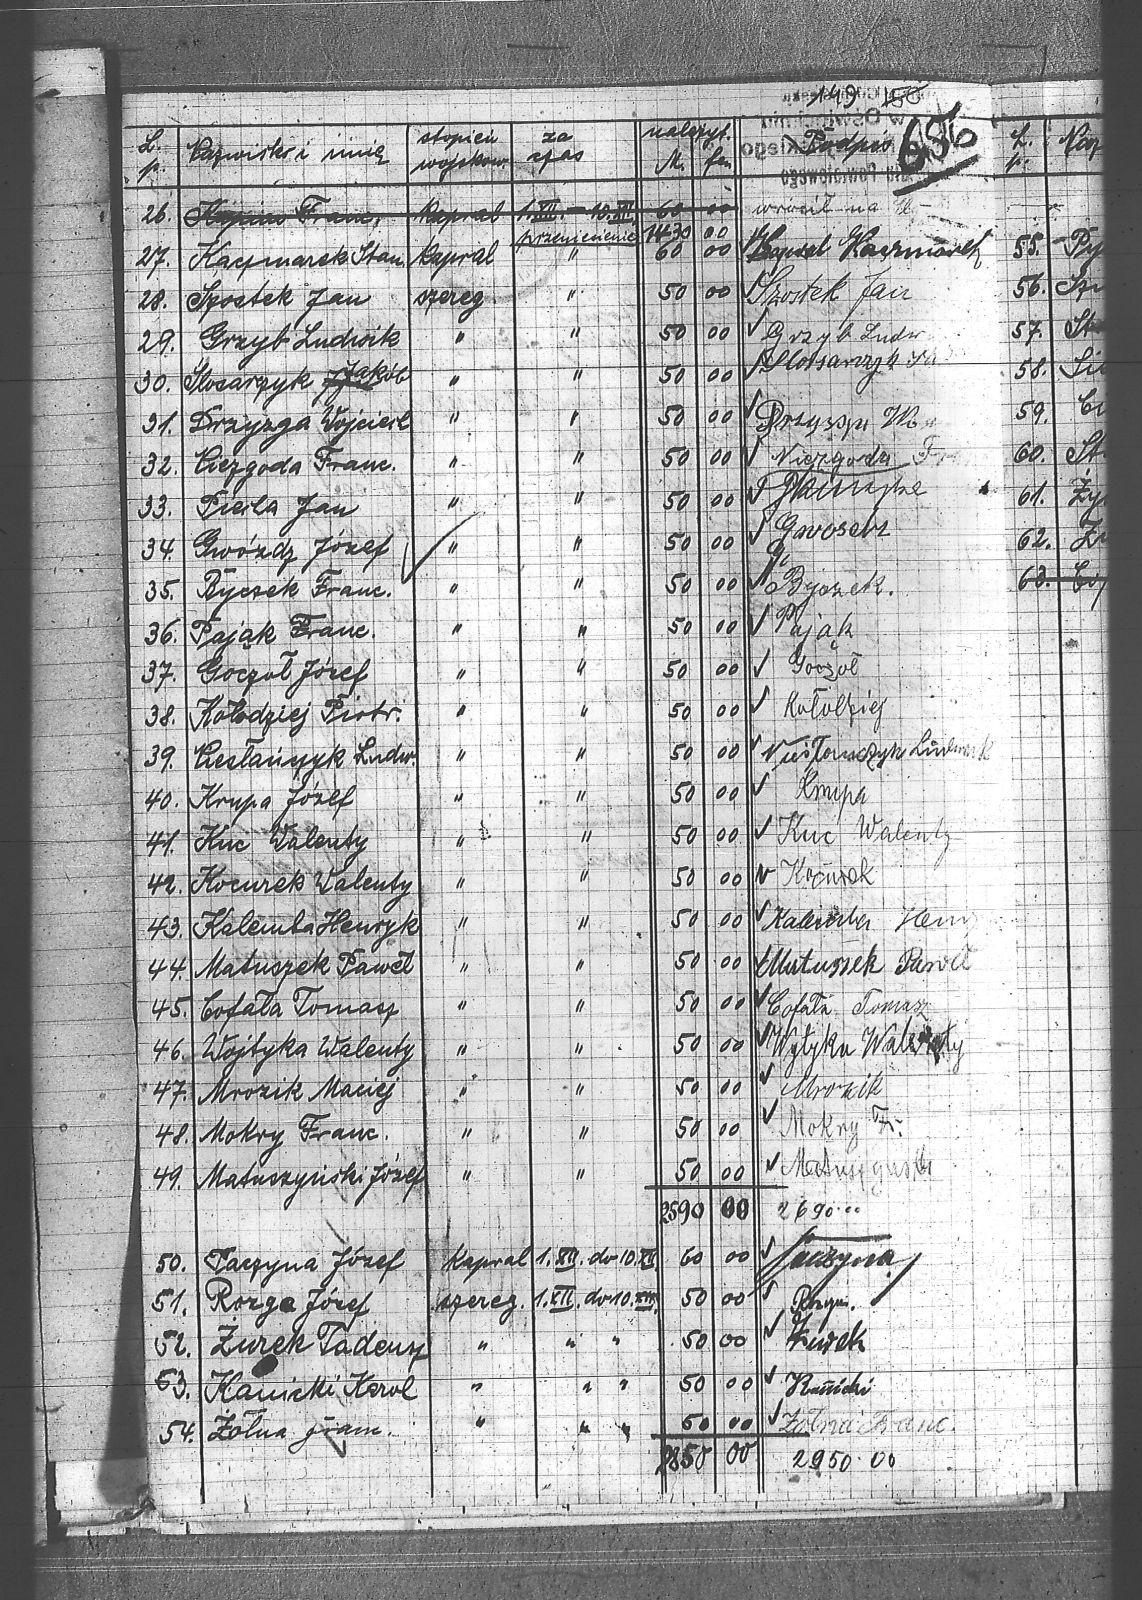 149 150
656
L. p. Nazwisko i imię stopień wojskow. za czas należyt. M. fen Podpis L. p.
26. Franc. Kapral 1.XII. - 10.XII. 60 00 wrócił na
przeniesienie 1430 00
27. Kaczmarek Stan. Kapral " 60 00 Kaczmarek 55.
28. Szostek Jan szereg " 50 00 Szostek Jan 56.
29. Grzyb Ludwik " " 50 00 Grzyb Ludw 57. St
30. Slosarzyk Jakób " " 50 00 Slosarczyk 58.
31. Drzyzga Wojciech " " 50 00 59.
32. Niezgoda Franc. " " 50 00 Niezgoda Fr 60. St
33. Piecha Jan " " 50 00 61. Ży
34. Gwóźdz Józef " " 50 00 62.
35. Byczek Franc. " " 50 00 Byczek. 63.
36. Pająk Franc. " " 50 00 Pająk
37. Goczoł Józef " " 50 00 Goczoł
38. Kołodziej Piotr. " " 50 00 Kołodziej
39. Niesłańczyk Ludw. " " 50 00 Ludwik
40. Krupa Józef " " 50 00 Krupa
41. Kuc Walenty " " 50 00 Kuc Walenty
42. Kocurek Walenty " " 50 00 Kocurek
43. Kalemba Henryk " " 50 00 Kalemba Henry
44. Matuszek Paweł " " 50 00 Matuszek Paweł
45. Cofała Tomasz " " 50 00 Cofała Tomasz
46. Wojtyka Walenty " " 50 00 Walenty
47. Mrozik Maciej " " 50 00 Mrozik
48. Mokry Franc. " " 50 00 Mokry Fr.
49. Matuszyński Józef " " 50 00 Matuszyński
2590 00 2690.00
50. Taczyna Józef Kapral 1.XII. do 10.XII. 60 00 Taczyna
51. Rozga Józef szereg. 1.XII. do 10.XII. 50 00
52. Żurek Tadeusz " " " 50 00 Żurek
53. Kanicki Karol " " " 50 00 Kanicki
54. Żółna Franc. " " " 50 00 Żółna Franc.
2850 00 2950.00